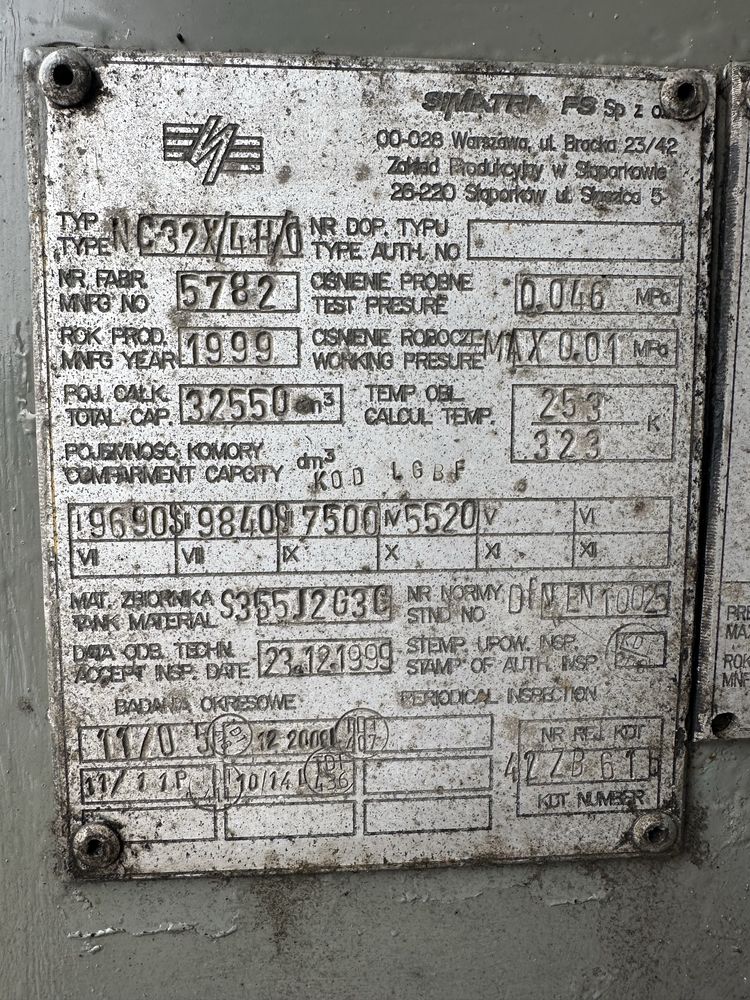 FS Sp z o.
00-028 Warszawa, ul. Bracka 23/42
Zakład Produkcyjny w Stąporkowie
26-220 Stąporków ul. Staszica 5
TYP NC32X/4H/0 NR DOP. TYPU
TYPE TYPE AUTH. NO
NR. FABR. 5782 CIŚNIENIE PRÓBNE 0.046 MPa
MNFG NO TEST PRESURE
ROK PROD. 1999 CIŚNIENIE ROBOCZE MAX 0.01 MPa
MNFG YEAR WORKING PRESURE
POJ. CAŁK. 32550 dm³ TEMP. OBL. 253
TOTAL. CAP. CALCUL TEMP. 323 K
POJEMNOŚĆ KOMORY dm³
COMPARMENT CAPCITY KOD LGBF
I 9690 II 9840 III 7500 IV 5520 V VI
VII VIII IX X XI XII
MAT. ZBIORNIKA S355J2G3C NR NORMY DIN EN 10025
TANK MATERIAL STND NO
DATA ODB. TECHN. 23.12.1999 STEMP. UPOW. INSP.
ACCEPT INSP. DATE STAMP OF AUTH. INSP.
BADANIA OKRESOWE PERIODICAL INSPECTION
11/05 12 2000 NR REJ. KDT
11/11P 10/14 TDT 42ZB61
KDT NUMBER